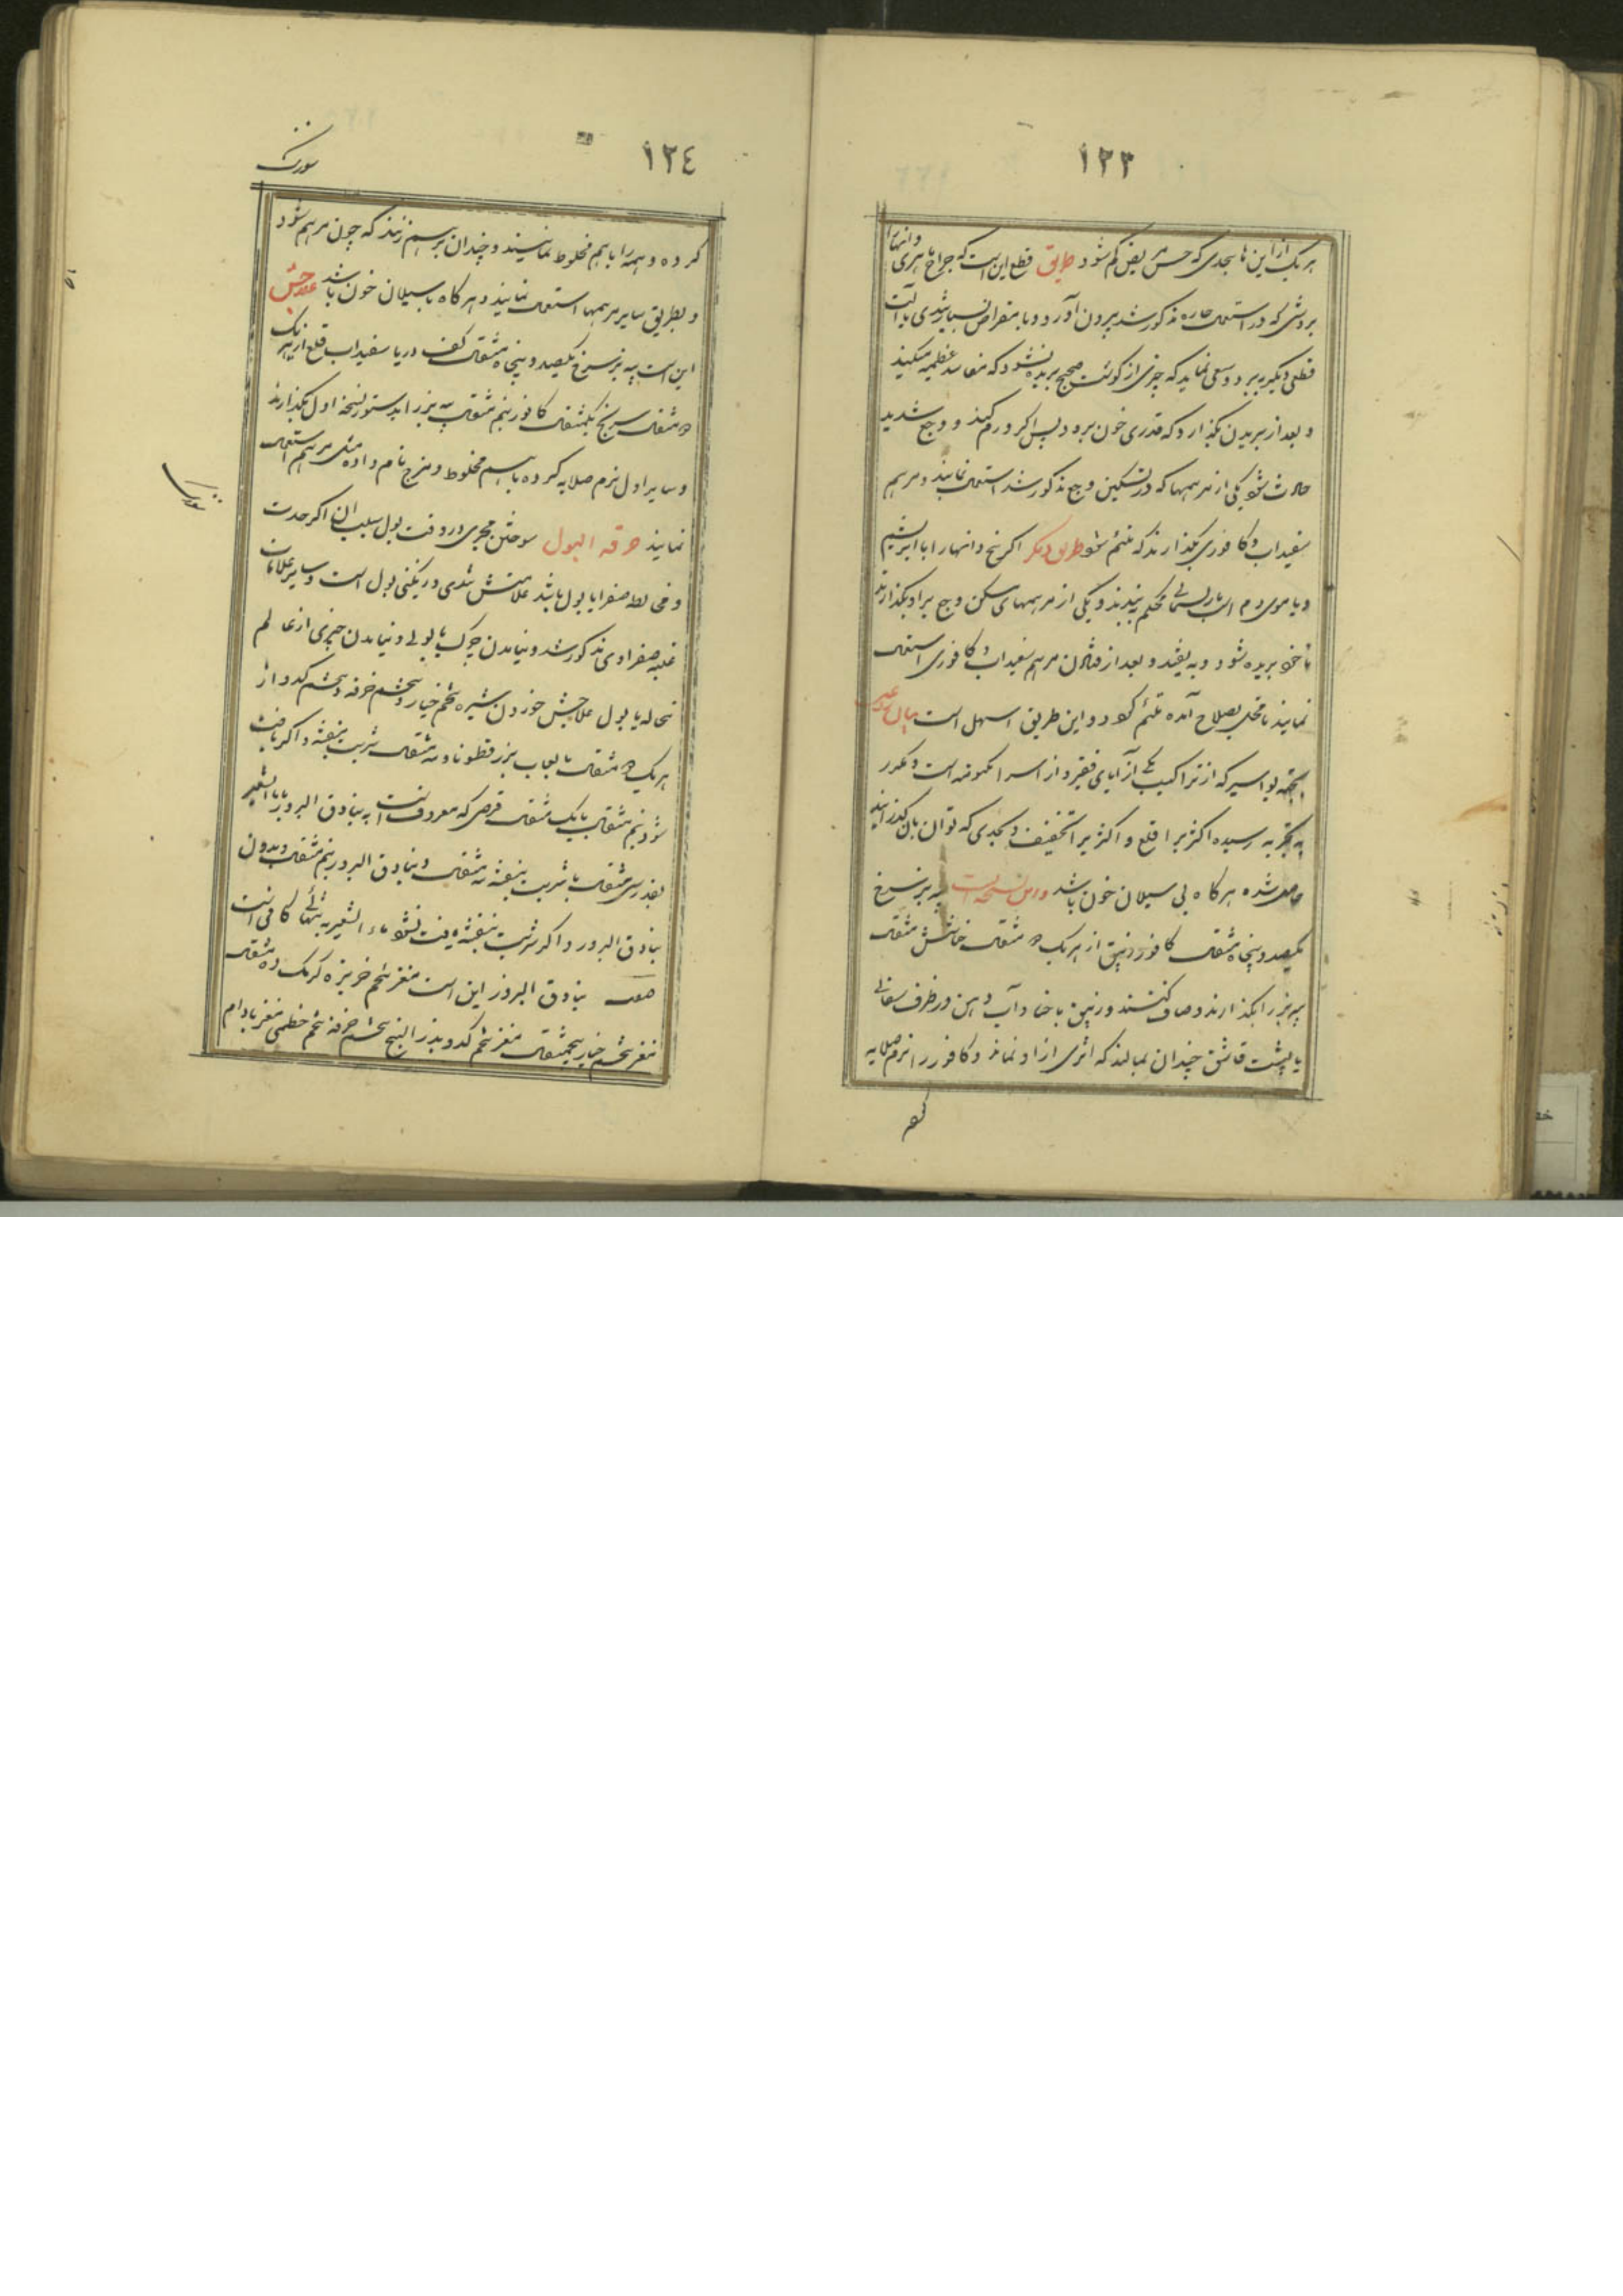 ١٢٣
هر یک از این ها بحدی که حس مریض کم شود طریق قطع این است که جراح ماهری دانهارا
بروشی که در استعمال حاره مذکور شد بیرون آورد و با مقراض بسیار تندی یا آلت
قطعی دیگر ببرد و سعی نماید که چیزی از گوشت صحیح بریده نشود که مفاسد عظیمه میکند
و بعد از بریدن بگذارد که قدری خون برود پس اگر ورم کند و وجع شدید
حادث شود یکی از مرهمها که در تسکین وجع مذکور شد استعمال نمایند و مرهم
سفیداب و کافوری بگذارند که ملتئم شود طریق دیگر اگر بیخ دانهارا با ابریشم
و یا موی دم اسب یا ریسمانی محکم ببندند و یکی از مرهمهای مسکن وجع بر او بگذارند
تا خود بریده شود و بیفتد و بعد از افتادن مرهم سفیداب و کافوری استعمال
نمایند تا محل بصلاح آمده ملتئم گردد و این طریق اسهل است بیان علاجی
بجهة بواسیر که از تراکیب آبای فقیر و از اسرار مکنونه است و مکرر
به تجربه رسیده اکثر برا قلع و اکثر برا تخفیف بحدی که توان بآن گذرانید
حاصل شده هرگاه بی سیلان خون باشد و این نسخه است پیه بز سرخ
یکصد و پنجاه مثقال کافور زیبق از هر یک مثقال خانش مثقال
پیه بز را بگذارند و صاف کنند و زیبق با حنا و آب دهن در ظرف سفالی
با پشت قاشق چندان بمالند که اثری از او نماند و کافور را نرم صلایه
کر
١٢٤
کرده و همه را با هم مخلوط نمایند و چندان برهم زنند که چون مرهم شود
و بطریق سایر مرهمها استعمال نمایند و هرگاه با سیلان خون باشد علاجش
این است پیه بز سرخ یکصد و پنجاه مثقال کف دریا سفیداب قلع از هر یک
مثقال سرنج یکمثقال کافور نیم مثقال پیه بز را بدستور نسخه اول بگذارند
و سایر را نرم صلایه کرده با هم مخلوط و مزج تام داده مثل مرهم استعمال
نمایند حرقه البول سوختن مجری در وقت بول بسبب آن اگر حدت
و مخالطه صفرا با بول باشد علامتش تندی و رنگینی بول است و سایر علامات
غلبه صفرا و می مذکور شد و نیامدن چرک با بول و نیامدن چیزی از عالم
نخاله با بول علاجش خوردن شیره تخم خیار و تخم خرفه و تخم کدو از
هر یک مثقال با لعاب بزر قطونا و نه مثقال شربت بنفشه و اگر یافت
شود نیم مثقال با یک مثقال قرصی که معروفست به بنادق البزور با ماء الشعیر
بقدر سی مثقال با شربت بنفشه نه مثقال و بنادق البزور نیم مثقال و بدون
بنادق البزور و اگر شربت بنفشه یافت نشود ماء الشعیر به تنهائی کافی است
صفت بنادق البزور این است مغز تخم خربزه گرمک ده مثقال
مغز تخم خیار پنجمثقال مغز تخم کدو بذر البنج تخم خرفه تخم خطمی مغز بادام